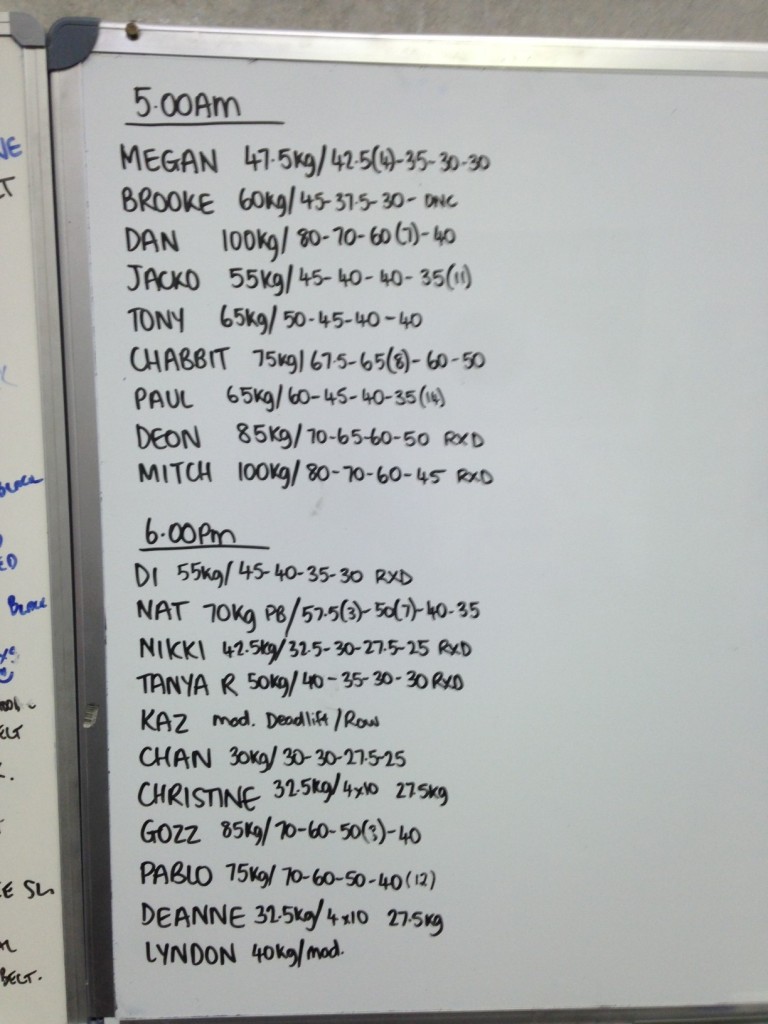 5.00AM
MEGAN 47.5kg/42.5(4)-35-30-30
BROOKE 60kg/45-37.5-30- DNC
DAN 100kg/80-70-60(7)-40
JACKO 55kg/45-40-40-35(11)
TONY 65kg/50-45-40-40
CHABBIT 75kg/67.5-65(8)-60-50
PAUL 65kg/60-45-40-35(14)
DEON 85kg/70-65-60-50 RXD
MITCH 100kg/80-70-60-45 RXD
6.00Pm
DI 55kg/45-40-35-30 RXD
NAT 70kg PB/57.5(3)-50(7)-40-35
NIKKI 42.5kg/32.5-30-27.5-25 RXD
TANYA R 50kg/40-35-30-30 RXD
KAZ mod. Deadlift/Row
CHAN 30kg/30-30-27.5-25
CHRISTINE 32.5kg/4x10 27.5kg
GOZZ 85kg/70-60-50(3)-40
PABLO 75kg/70-60-50-40(12)
DEANNE 32.5kg/4x10 27.5kg
LYNDON 40kg/mod.
BLACK
BLACK
BELT.